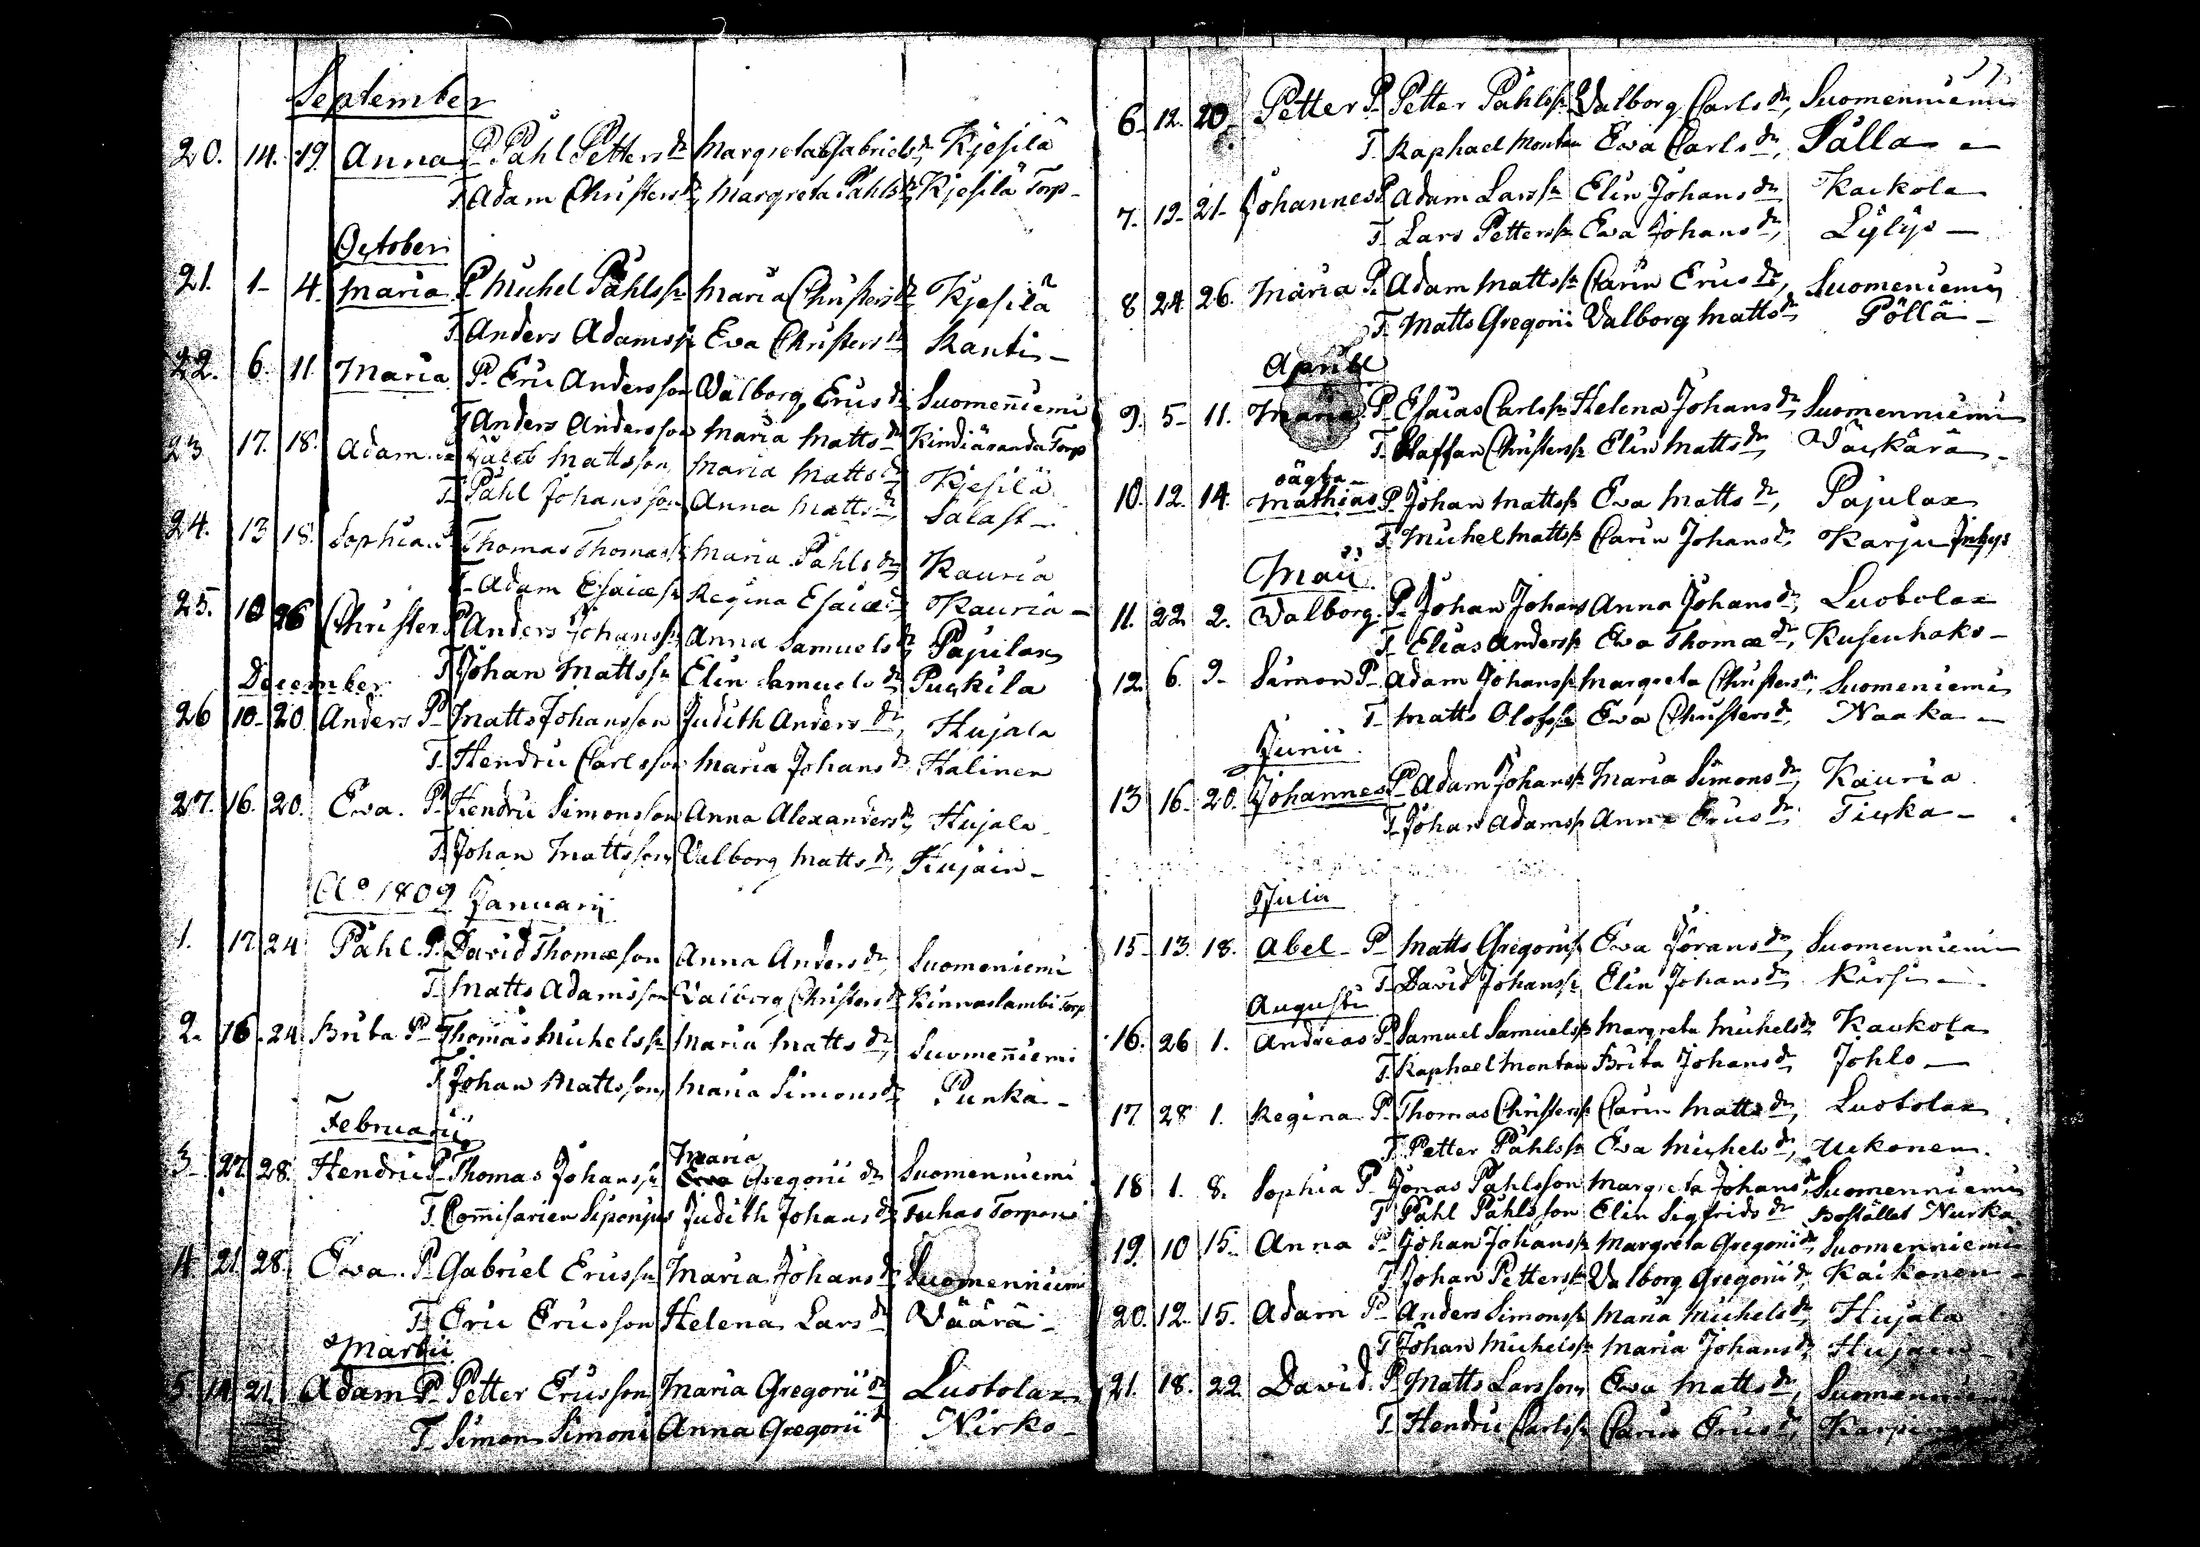 September
20. 14. 19. Anna P. Påhl Petters dr Margreta Gabriels dr, Kjesilä
T. Adam Christers dr, Margreta Påhls dr, Kjesilä Torp -
October
21. 1- 4. Maria P. Michel Påhlssn Maria Christers dr Kjesilä
T. Anders Adamssn Eva Christers dr Kanti -
22. 6. 11. Maria P. Eric Andersson Valborg Erics dr Suomeñiemi
T. Anders Andersson Maria Matts dr Kindiäranda Torp
23. 17. 18. Adam. Jacob Mattsson, Maria Matts dr, Kjesilä
T. Påhl Johansson Anna Matts dr, Salast -
24. 13 18. Sophia. P. Thomas Thomassn Maria Påhls dr, Kauria
T. Adam Esaiæsn Regina Esaiæ dr, Kauria -
25. 10 26 Christer. P. Anders Johanssn, Anna Samuels dr, Pajulax
T. Johan Mattssn Elin Samuels dr Puckila
December
26 10- 20. Anders P. Matts Johansson Judith Anders dr, Hujala
T. Hendric Carlsson Maria Johans dr Halinen
27. 16. 20. Eva. P. Hendric Simonsson Anna Alexanders dr, Hujala
T. Johan Mattsson, Valborg Matts dr, Hujain -
Ao 1809 Januarij
1. 17 24 Påhl. P. David Thomæson Anna Anders dr, Suomeniemi
T. Matts Adamsson Valborg Christers dr Kinnaslambi Torp
2. 16. 24. Brita P. Thomas Michelssn Maria Matts dr, Suomeñiemi
T. Johan Mattsson, Maria Simons dr Punka -
Februarii
3 27. 28. Hendric P. Thomas Johanssn Maria Gregorii dr Suomenniemi
T. Com̃isarien Siponjus Judith Johans dr Tuhas Torpare
4. 21. 28. Eva. P. Gabriel Ericssn Maria Johans dr Suomenniemi
T. Eric Ericsson Helena Lars dr Väärä -
Martii
5. 14 21. Adam P. Petter Ericsson Maria Gregorii dr Luotolax
T. Simon Simoni Anna Gregorii dr Nirko -
6. 12. 20. Petter P. Petter Påhlssn Valborg Carls dr, Suomenniemi
T. Raphael Montan Eva Carls dr, Salla -
7. 19- 21- Johannes P. Adam Larssn Elin Johans dr Kackola
T. Lars Petterssn Eva Johans dr, Lylys -
8 24. 26. Maria P. Adam Mattssn Carin Erics dr, Suomeniemi
T. Matts Gregorii Valborg Matts dr Pöllä -
Aprill
9. 5- 11. Maria P. Esaias Carlssn Helena Johans dr, Suomenniemi
T. Staffan Christerssn Elin Matts dr,
oägta -
10. 12. 14. Mathias P. Johan Mattssn Eva Matts dr, Pajulax
T. Michel Mattssn Carin Johans dr, Karju Inhys
Maii
11. 22. 2. Valborg. P. Johan Johans Anna Johans dr, Luotolax
T. Elias Anderssn Eva Thomæ dr, Kusenhako -
12. 6. 9- Simon P. Adam Johanssn Margreta Christers dr, Suomeniemi
T. Matts Olofssn Eva Christers dr, Naaka -
Junii
13 16- 20. Johannes P. Adam Johanssn Maria Simons dr, Kauria
T. Johan Adamssn Anna Erics dr, Ticka -
Julii
15- 13. 18. Abel - P. Matts Gregorissn Eva Jörans dr, Suomenniemi
T. David Johanssn Elin Johans dr Kirsi -
Augusti
16. 26 1. Andreas P. Samuel Samuelssn Margreta Michels dr Kackola
T. Raphael Montan Brita Johans dr, Johlo -
17 28 1. Regina P. Thomas Christerssn Carin Matts dr, Luotolax
T. Petter Påhlssn Eva Michels dr, Uckonen.
18 1. 8. Sophia P. Jonas Påhlsson Margreta Johans dr, Suomenniemi
T. Påhl Påhlsson Elin Sigfrids dr Bostället Nurka
19. 10 15- Anna P. Johan Johanssn Margreta Gregorii dr, Suomenniemi
T. Johan Petterssn Valborg Gregorii dr, Kaikonen -
20. 12. 15. Adam P. Anders Simonssn Maria Michels dr, Hujala
T. Johan Michelssn Maria Johans dr, Hujain -
21. 18. 22. David. P. Matts Larsson Eva Matts dr, Suomenniemi
T. Hendric Carlssn Carin Erics dr,